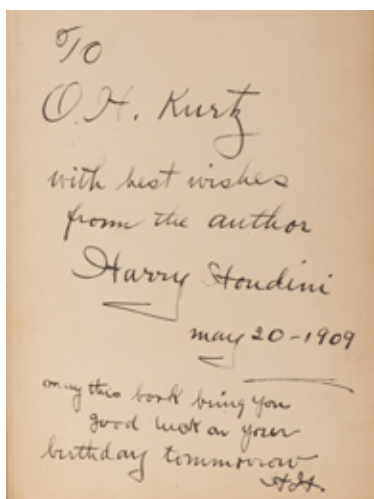 To
O. H. Kurtz
with best wishes
from the author
Harry Houdini
may 20-1909
may this book bring you
good luck on your
birthday tommorrow
H.H.